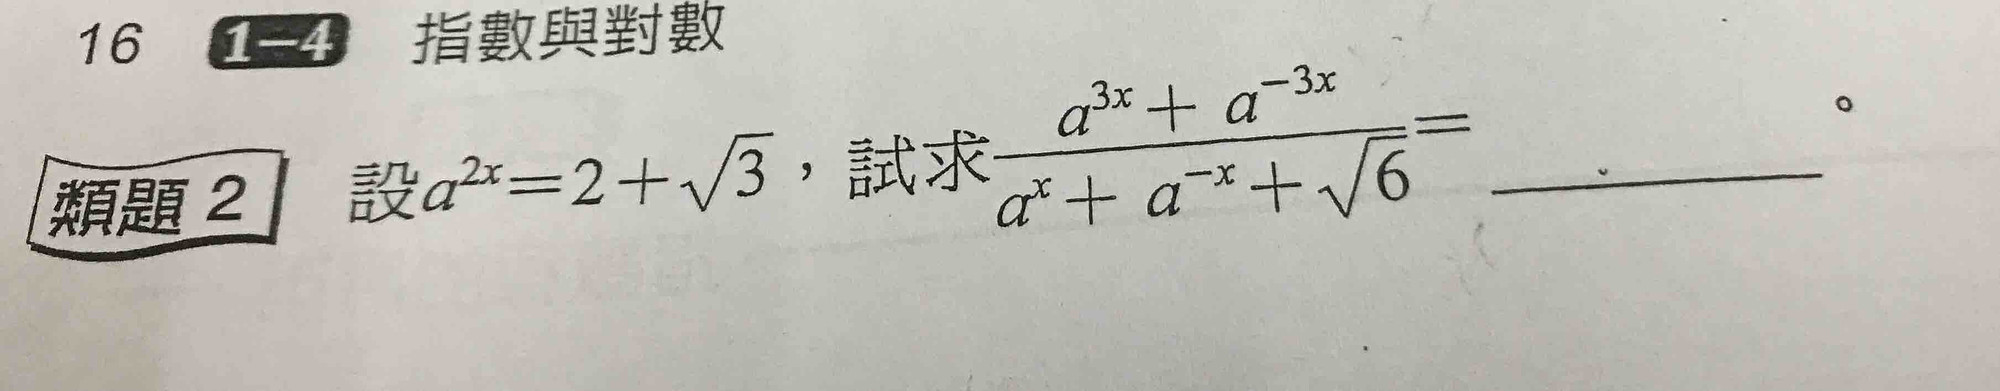 16 1-4 指數與對數
類題 2 設 $a^{2x}=2+\sqrt{3}$，試求 $\frac{a^{3x}+a^{-3x}}{a^{x}+a^{-x}+\sqrt{6}}=$ ________。